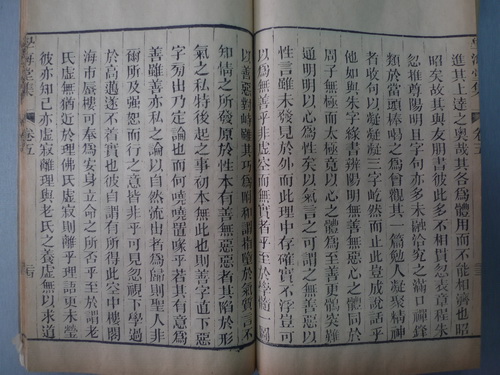 進其上達之奧哉其各爲體用而不能相濟也昭
昭矣故其與友朋書彼此多不相貫忽表章程朱
忽推尊陽明且字句亦多未融洽究之滿口禪鋒
類於當頭棒喝之爲曾觀其一篇勉人凝聚精神
者收句以凝凝凝三字屹然而止此豈成說話乎
他如與朱字綠書辨陽明無善無惡心之體同於
周子無極而太極竟以心之體爲至善其鶻突難
通明明以心爲性矣以氣言之可謂之無善無惡
性言雖未發見於外而此理中存確實不浮豈可
以爲無善乎非虛空而無實者乎至於
以善惡其巧爲附和謂指墮於氣質言不
知情之所發原於性本有善無惡惡者其陷於形
氣之私特後起之事初本無此也則善字直下惡
字旁出乃定論也而何嘵嘵置喙乎若其有意爲
善雖善亦私之論以自然流出者爲歸則聖人非
爾所及强恕而行之意皆非乎可見忽視下學過
於高遠遂不着實也彼自謂有所得此空中樓閣
海市蜃樓可奉爲安身立命之所否乎至於謂老
氏虛無猶近於理佛氏虛寂則離乎理語更未瑩
彼亦知已亦虛寂離理與老氏之養虛無以求道
海堂集 卷五